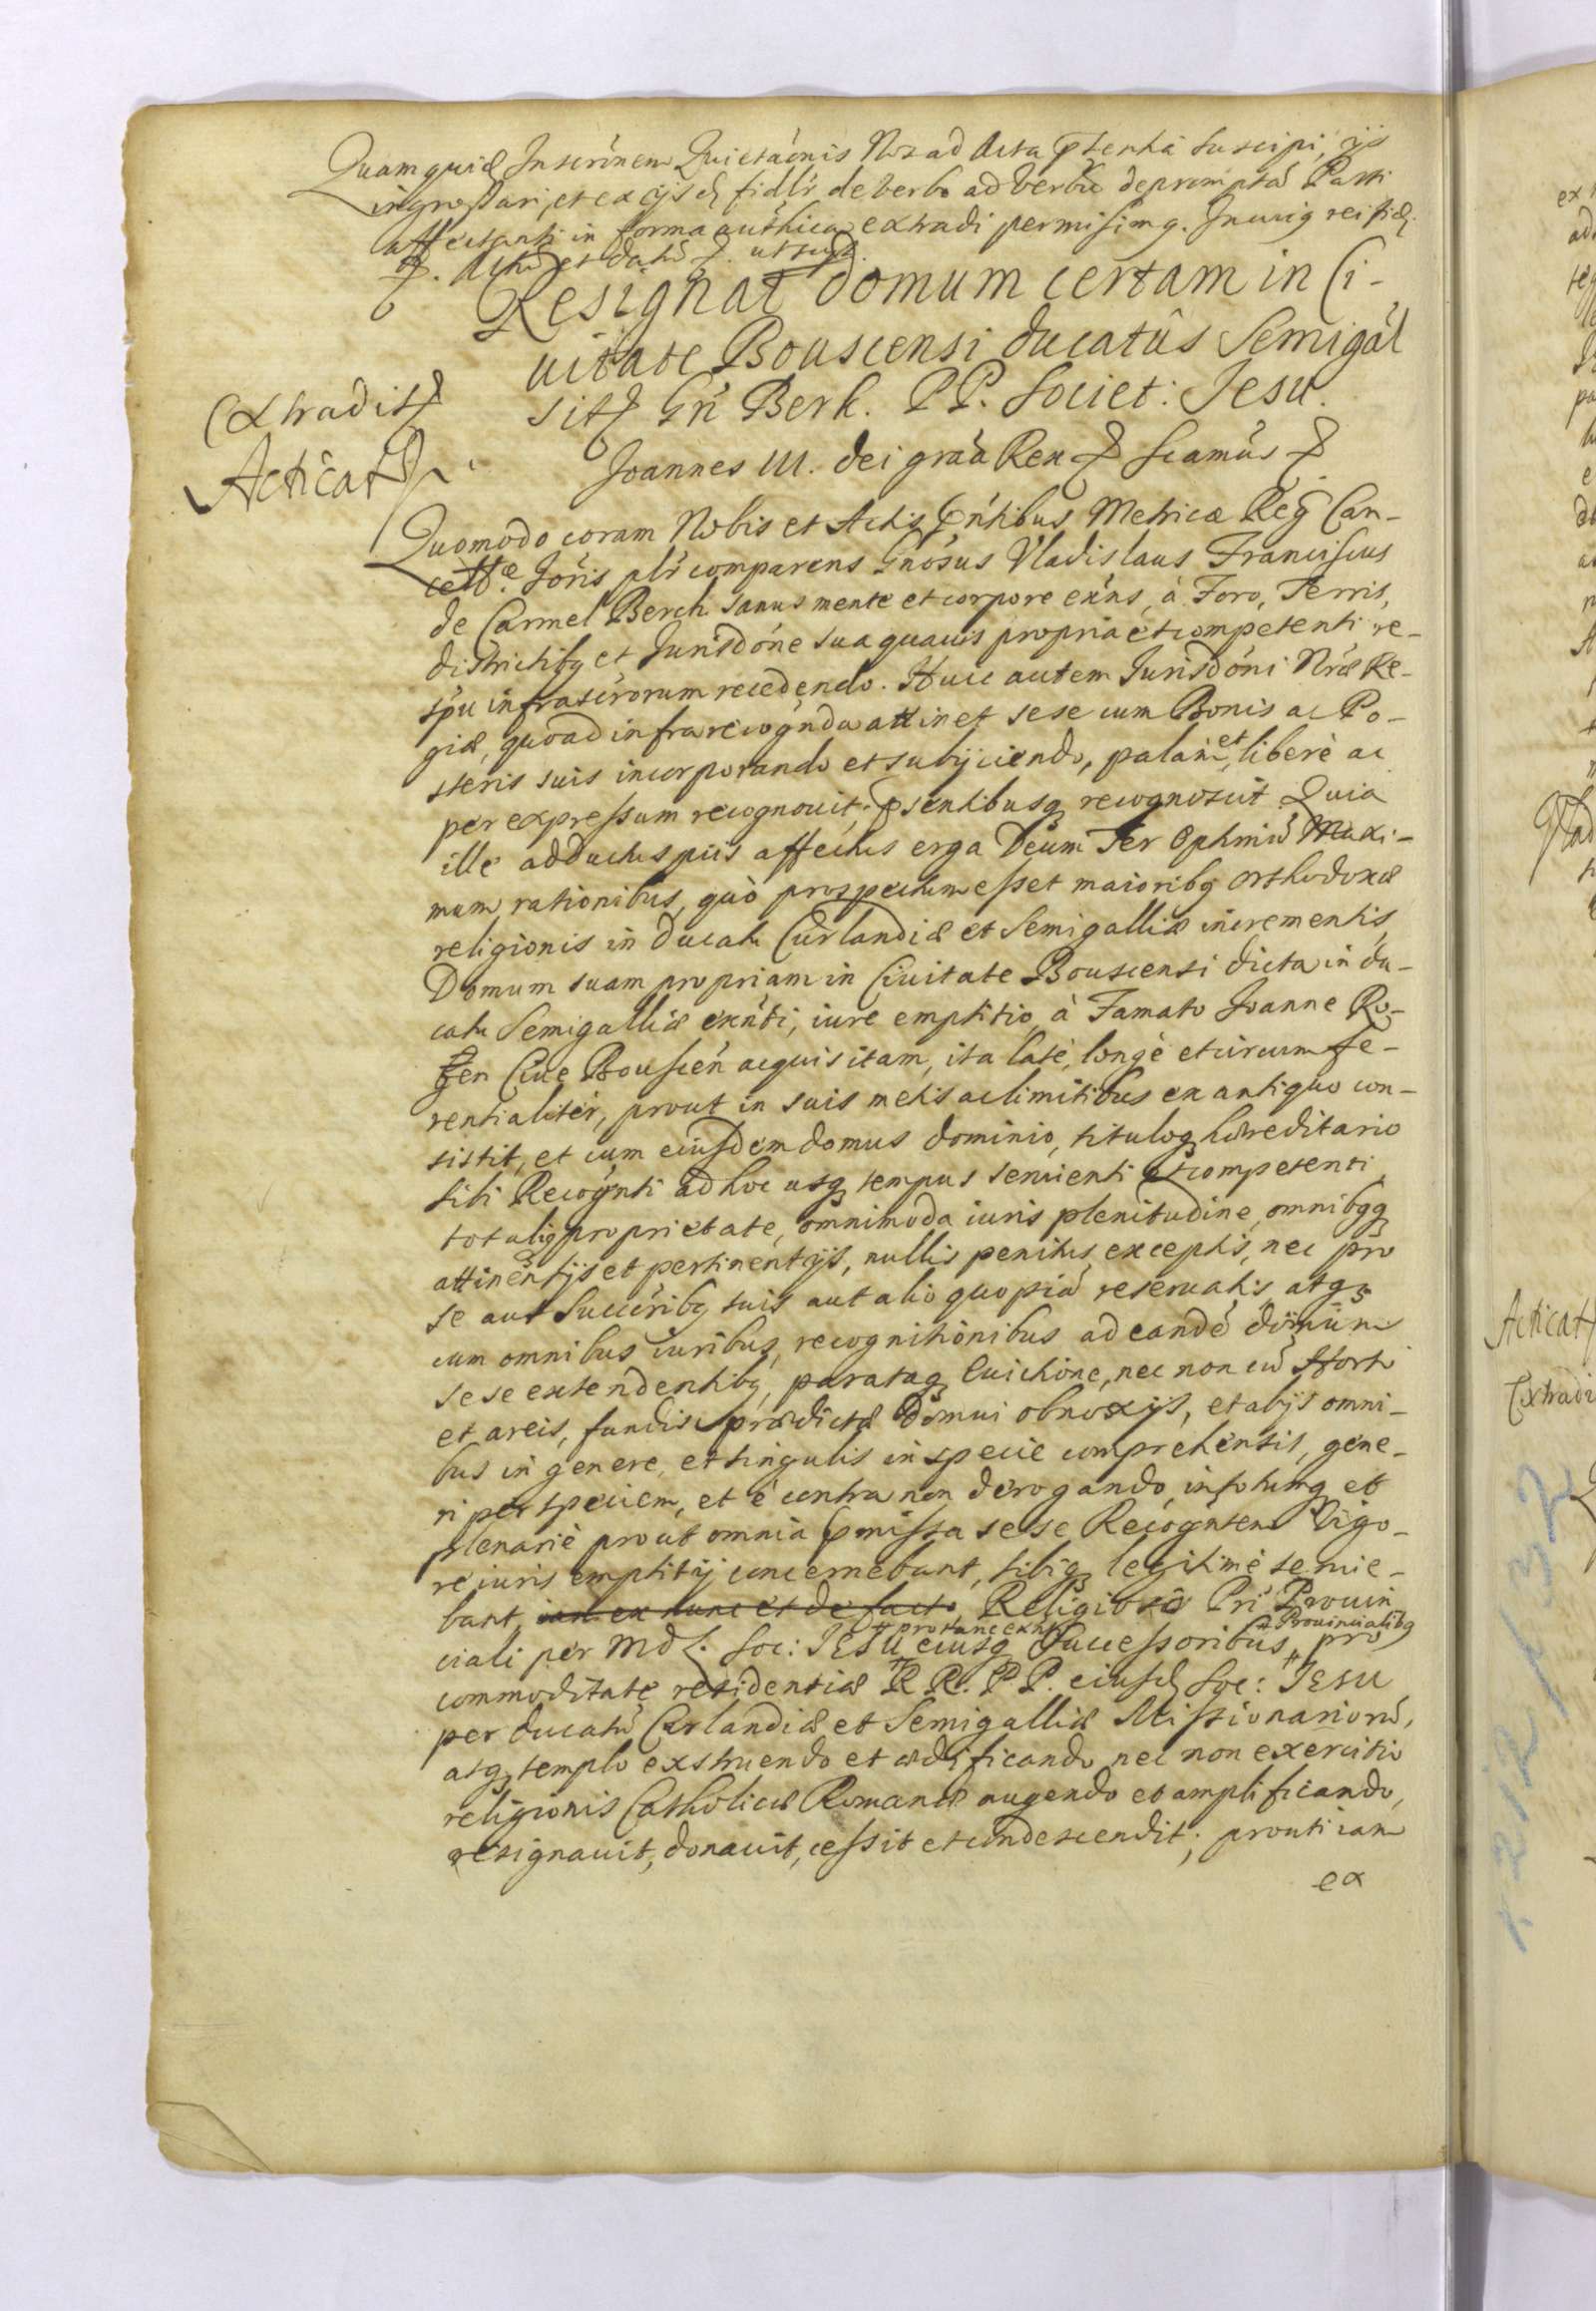 Quam quidē Inscrōnem Quietaōnis Nos ad Acta pñtentia suscipi, ijs
ingrossari, et ex ijsd. fidlr de verbo ad verbū depromptā Parti
affectanti in forma authica extradi permisimq. In cuiq rei fidē
&. Actū et datū &. ut supra.
Resignat domum certam in Ci-
uitate Bouscensi ducatûs Semigal
sit Gñ Berk. PP. Societ: Jesu.
Extradit
Acticat
Joannes III. dei gra̅a Rex & Sc̅amus &
Quomodo coram Nobis et Actis p̄ntibus Metricæ Reg Can-
cellæ. Joris plr comparens Gnosus Vladislaus Franciscus
de Carmel Berch sanus mente et corpore exns, à Foro, Terris,
districtibq et Jurisdone sua quauis propria et competenti re-
spu infrascrorum recedendo. Huic autem Jurisdoni Nræ Re-
giæ, quoad infra recognda attinet sese cum Bonis ac Po-
steris suis incorporando et subijciendo, palàm et, liberè ac
per expressum recognouit, p̄sentibusq recognoscit. Quia
ille adductus piis affectus erga Deum Ter Optimū Maxi-
mum rationibus, quò prospectum esset maioribq Orthodoxæ
religionis in Ducatu Curlandiæ et Semigalliæ incrementis,
Domum suam propriam in Ciuitate Bouscensi dicta in du-
catu Semigalliæ exnti, iure emptitio, à Famato Joanne Ro-
zen Ciue Bouscen acquisitam, ita latè, longè et circumfe-
rentialiter, prout in suis metis ac limitibus ex antiquo con-
sistit, et cum eiusdem domus dominio, tituloq hæreditario
sibi Recognti ad hoc usq tempus seruienti et competenti,
totaliq proprietate, omnimoda iuris plenitudine, omnibqq
attinentijs et pertinentijs, nullis penitus exceptis, nec pro
se aut Succeribq suis aut alio quopiā reseruatis, atq
cum omnibus iuribus, recognitionibus ad eandē domum
sese extendentibq, parataq Euictione, nec non cū Horto
et areis, fundis prædictæ Domui obnoxijs, et alijs omni-
bus in genere, et singulis in specie comprehensis, gene-
ri per speciem, et è contra non derogando, in totumq et
plenariè prout omnia p̄missa sese Recogntem Vigo-
re iuris emptitij concernebant, sibiq legitimè seruie-
bant, iam ex nunc et de facto, Religioso Pri Prouin
ciali per MDL. Soc: JESU # pro tunc exn. eiusq Successoribus # Prouincialibq, pro
commoditate residentiæ RR. PP. eiusd Soc: JESU
per ducatū Curlandiæ et Semigalliæ Missionariorū,
atq templo exstruendo et ædificando nec non exercitio
religionis Catholicæ Romanæ augendo et amplificando,
resignauit, donauit, cessit et condescendit; prout iam
ex